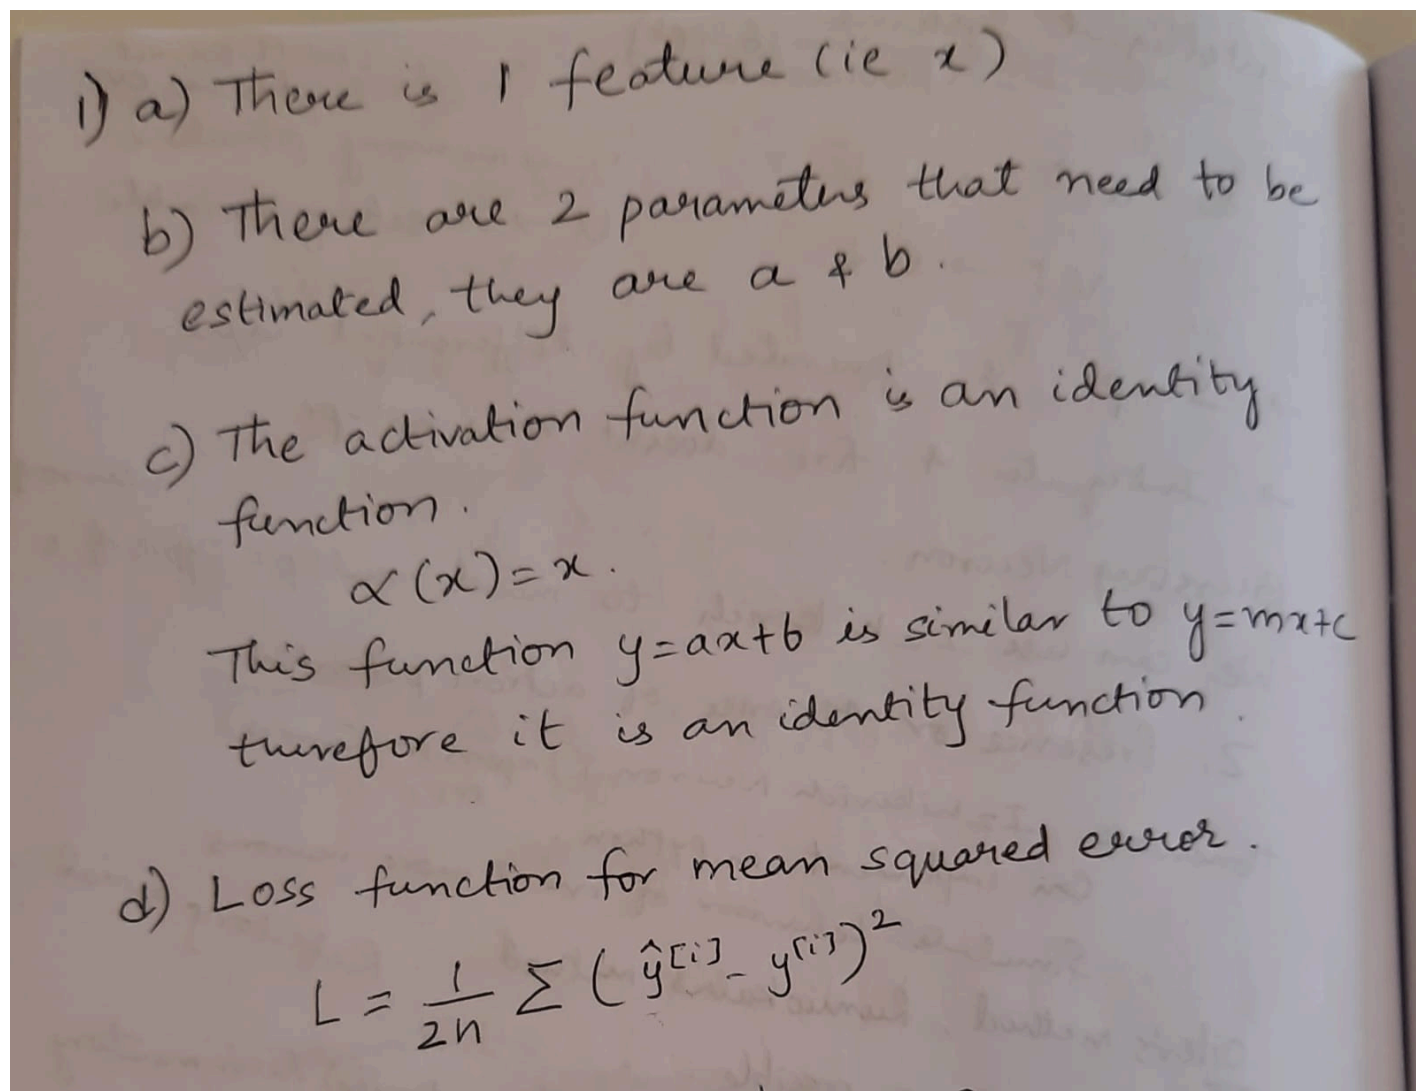 1) a) There is 1 feature (ie x)
b) There are 2 parameters that need to be
estimated, they are a & b.
c) The activation function is an identity
function.
α(x)=x.
This function y=ax+b is similar to y=mx+c
therefore it is an identity function.
d) Loss function for mean squared error.
L = 1/2n Σ (ŷ[i] - y[i])²